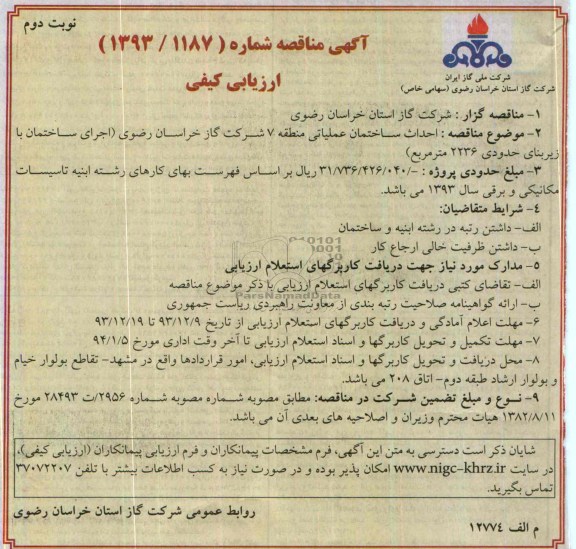 نوبت دوم
آگهی مناقصه شماره ( ۱۱۸۷ / ۱۳۹۳ )
ارزیابی کیفی
شرکت ملی گاز ایران
شرکت گاز استان خراسان رضوی (سهامی خاص)
۱- مناقصه گزار : شرکت گاز استان خراسان رضوی
۲- موضوع مناقصه : احداث ساختمان عملیاتی منطقه ۷ شرکت گاز خراسان رضوی (اجرای ساختمان با
زیربنای حدودی ۲۲۳۶ مترمربع)
۳- مبلغ حدودی پروژه : -/۳۱/۷۳۶/۴۲۶/۰۴۰ ریال بر اساس فهرست بهای کارهای رشته ابنیه تاسیسات
مکانیکی و برقی سال ۱۳۹۳ می باشد.
۴- شرایط متقاضیان:
الف- داشتن رتبه در رشته ابنیه و ساختمان
ب- داشتن ظرفیت خالی ارجاع کار
۵- مدارک مورد نیاز جهت دریافت کاربرگهای استعلام ارزیابی
الف- تقاضای کتبی دریافت کاربرگهای استعلام ارزیابی با ذکر موضوع مناقصه
ب- ارائه گواهینامه صلاحیت رتبه بندی از معاونت راهبردی ریاست جمهوری
۶- مهلت اعلام آمادگی و دریافت کاربرگهای استعلام ارزیابی از تاریخ ۹۳/۱۲/۹ تا ۹۳/۱۲/۱۹
۷- مهلت تکمیل و تحویل کاربرگها و اسناد استعلام ارزیابی تا آخر وقت اداری مورخ ۹۴/۱/۵
۸- محل دریافت و تحویل کاربرگها و اسناد استعلام ارزیابی، امور قراردادها واقع در مشهد- تقاطع بولوار خیام
و بولوار ارشاد طبقه دوم- اتاق ۲۰۸ می باشد.
۹- نوع و مبلغ تضمین شرکت در مناقصه: مطابق مصوبه شماره مصوبه شماره ۲۹۵۶/ت ۲۸۴۹۳ مورخ
۱۳۸۲/۸/۱۱ هیات محترم وزیران و اصلاحیه های بعدی آن می باشد.
شایان ذکر است دسترسی به متن این آگهی، فرم مشخصات پیمانکاران و فرم ارزیابی پیمانکاران (ارزیابی کیفی)،
در سایت www.nigc-khrz.ir امکان پذیر بوده و در صورت نیاز به کسب اطلاعات بیشتر با تلفن ۳۷۰۷۲۲۰۷
تماس بگیرید.
روابط عمومی شرکت گاز استان خراسان رضوی
م الف ۱۲۷۷۴
ParsNamadData